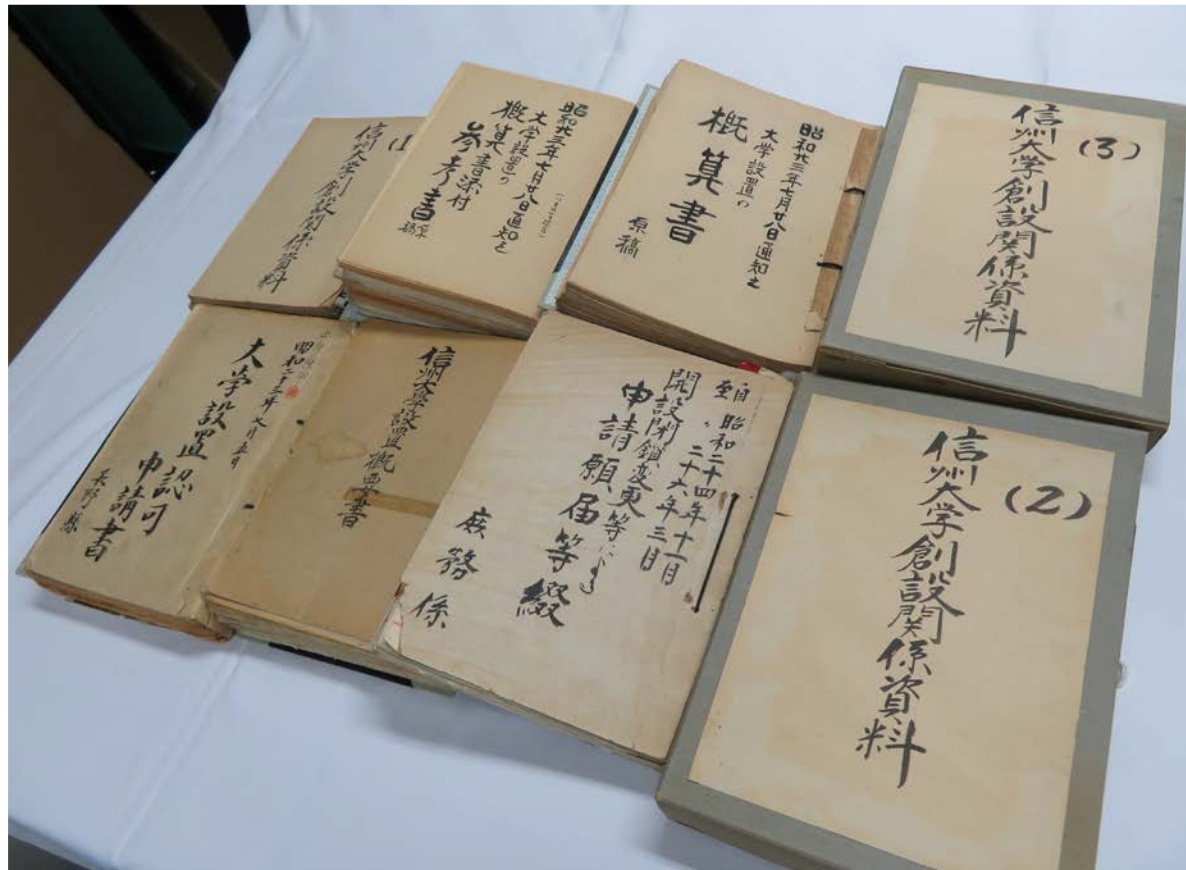 (1)
信州大学創設関係資料
昭和廿三年七月廿八日通知之
大学設置の
概算書添付
参考書
原稿
昭和廿三年七月廿八日通知之
大学設置の
概算書
原稿
(3)
信州大学創設関係資料
昭和二十三年七月五日
大学設置認可
申請書
長野縣
信州大学設置概要書
自昭和二十四年十一月
至〃二十六年三月
開設閉鎖変更等による
申請願届等綴
庶務係
(2)
信州大学創設関係資料